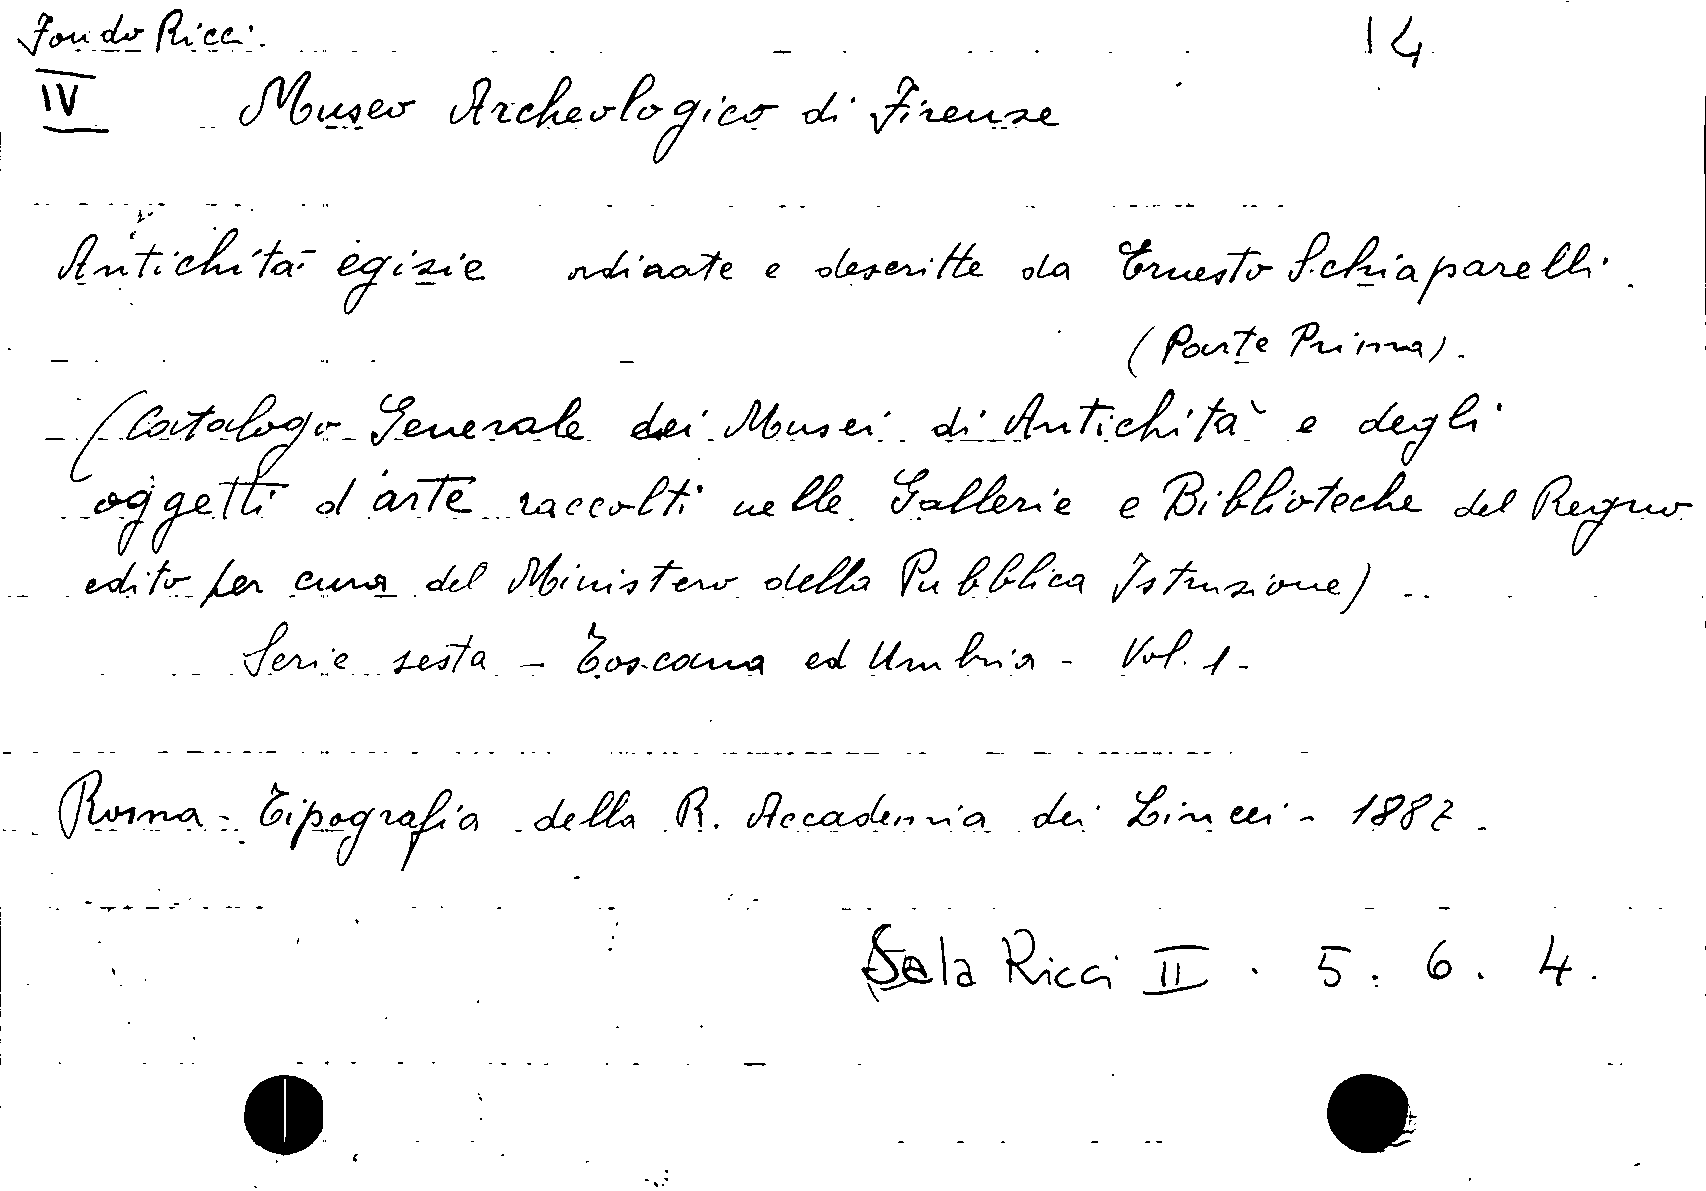 Fondo Ricci. 14
IV Museo Archeologico di Firenze
Antichità egizie ordinate e descritte da Ernesto Schiaparelli.
(Parte Prima).
(Catalogo Generale dei Musei di Antichità e degli
oggetti d'arte raccolti nelle Gallerie e Biblioteche del Regno
edito per cura del Ministero della Pubblica Istruzione)
Serie sesta - Toscana ed Umbria - Vol. 1 -
Roma - Tipografia della R. Accademia dei Lincei - 1887.
Sala Ricci II . 5 . 6 . 4 .